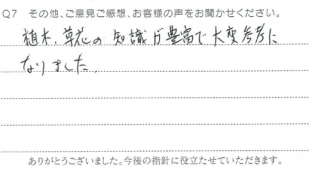 Q7 その他、ご意見ご感想、お客様の声をお聞かせください。
植木、草花の知識が豊富で大変参考に
なりました。
ありがとうございました。今後の指針に役立たせていただきます。